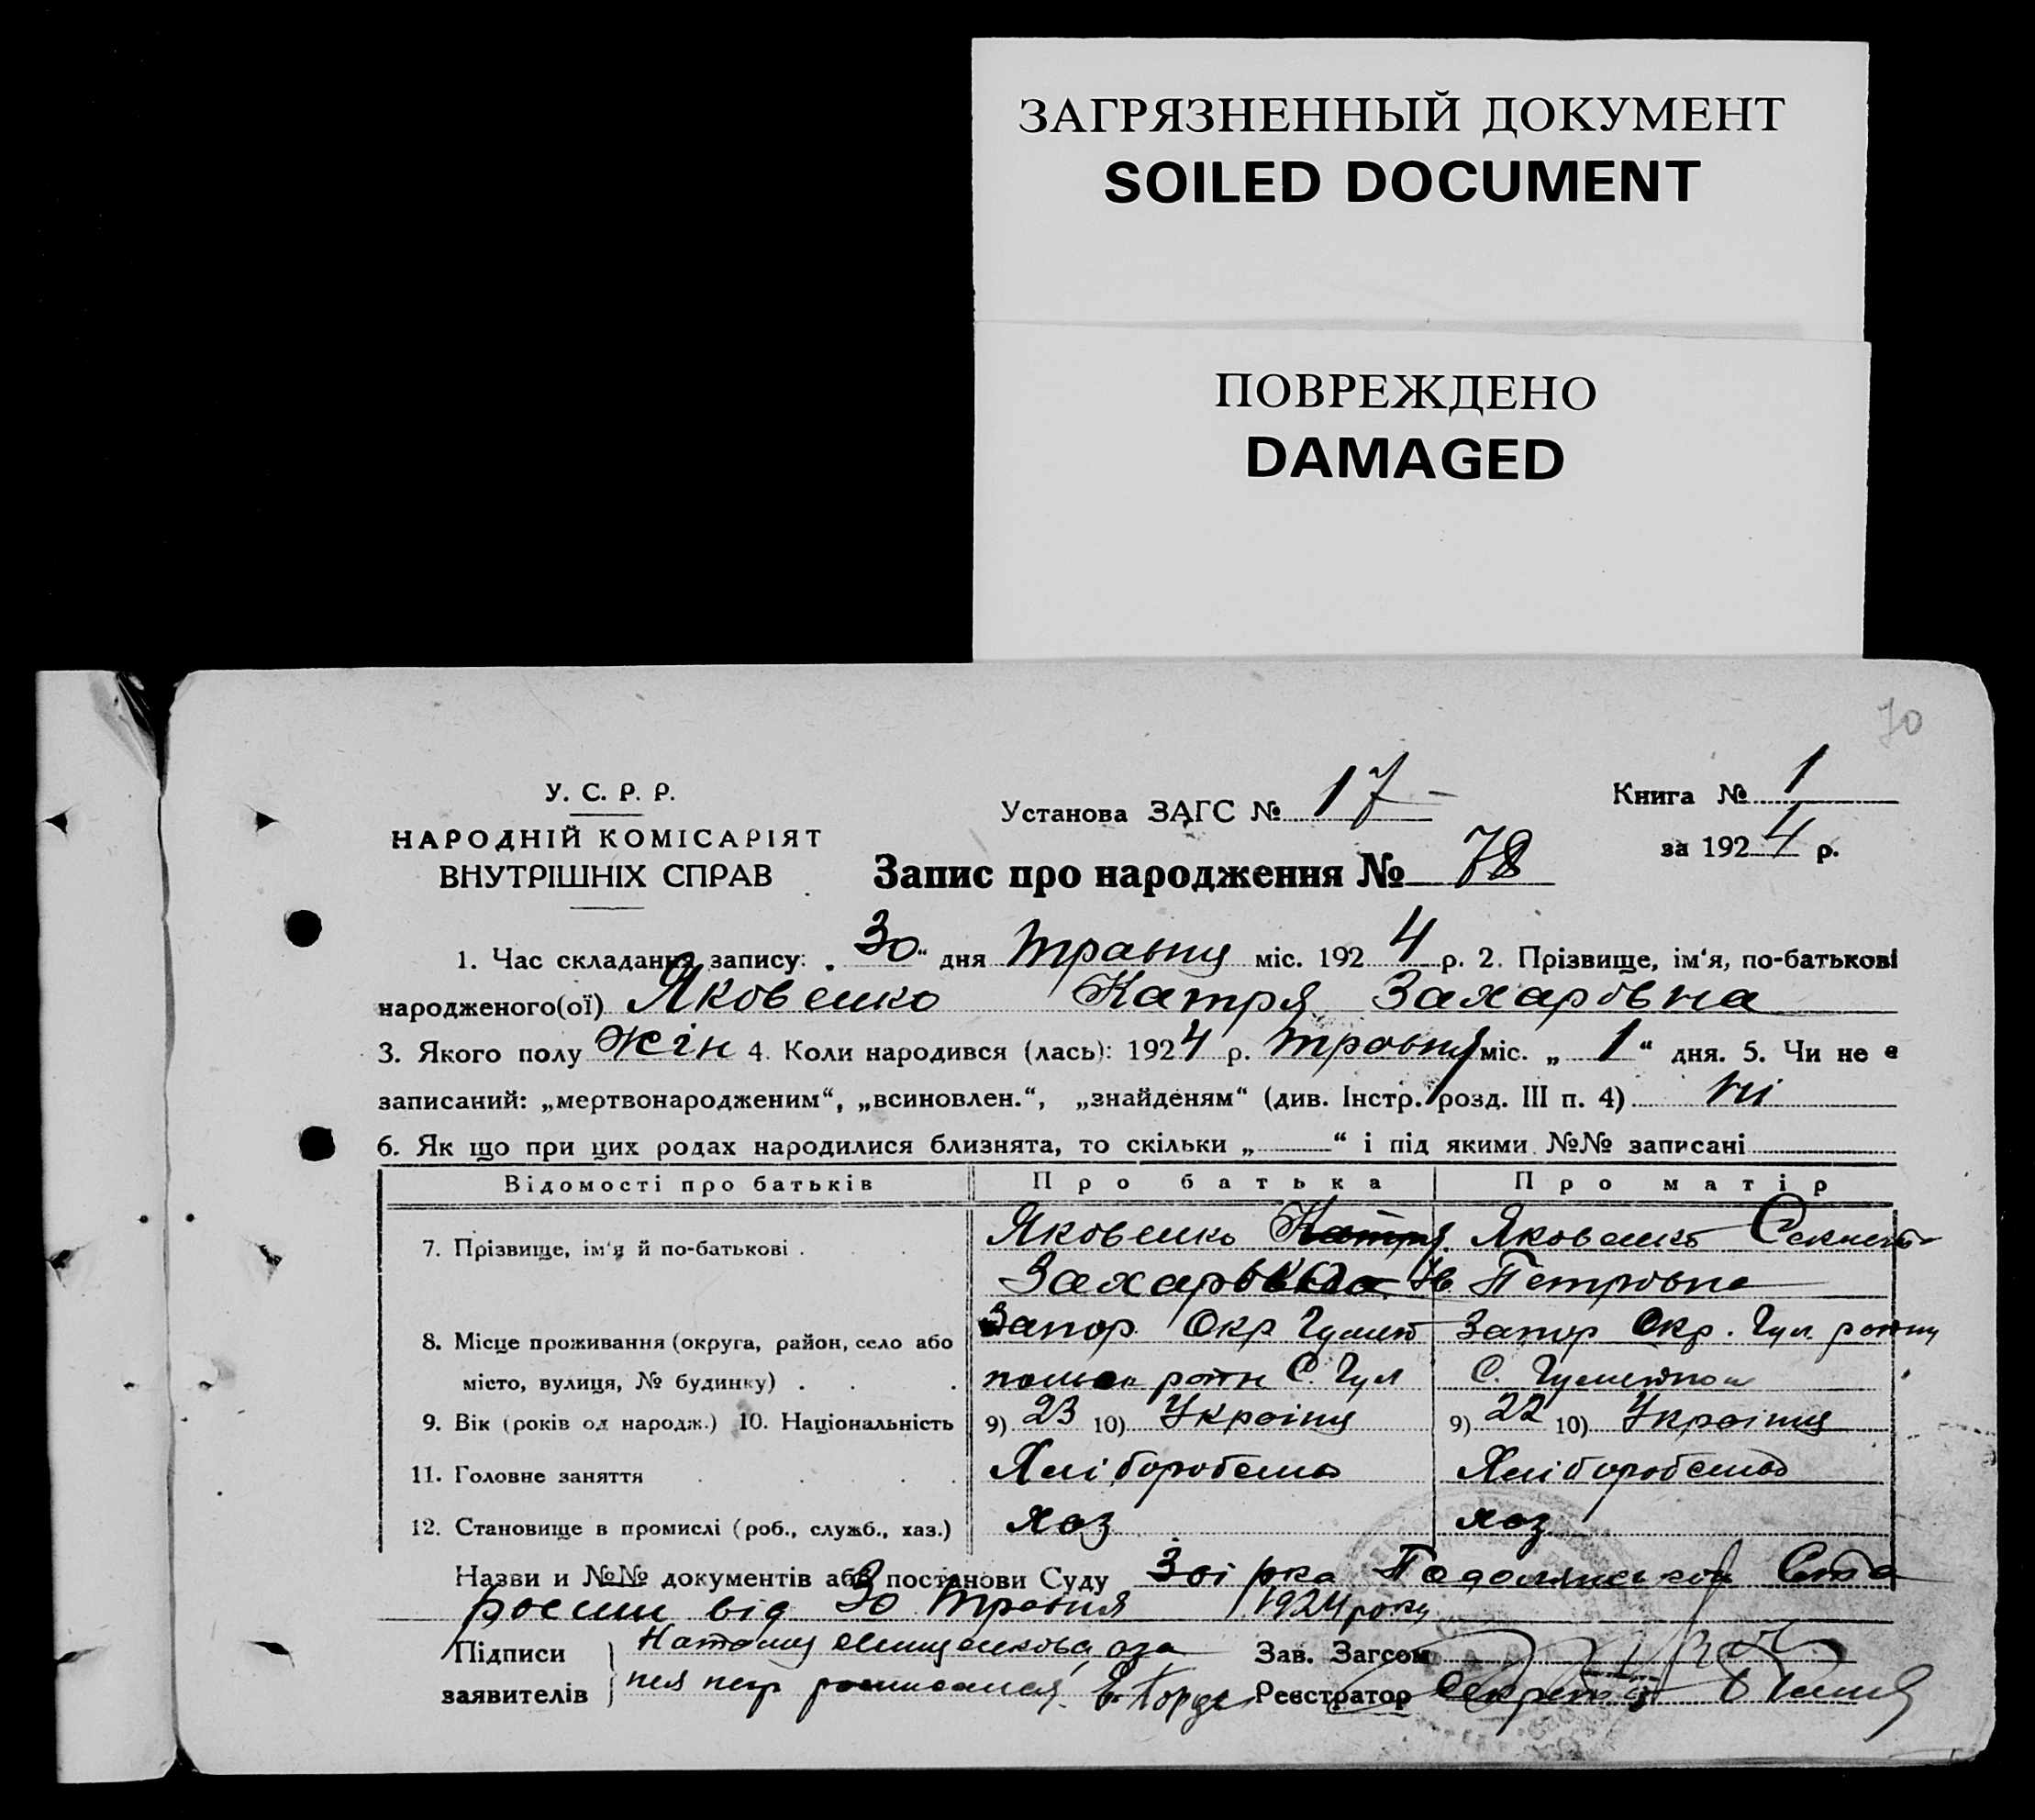 ЗАГРЯЗНЕННЫЙ ДОКУМЕНТ
SOILED DOCUMENT
ПОВРЕЖДЕНО
DAMAGED
70
У. С. Р. Р.
НАРОДНІЙ КОМІСАРІЯТ
ВНУТРІШНІХ СПРАВ
Установа ЗАГС № 17
Книга № 1
за 1924 р.
Запис про народження № 78
1. Час складання запису: „30“ дня травня міс. 1924 р. 2. Прізвище, ім'я, по-батькові
народженого(ої) Яковенко Катря Захаровна
3. Якого полу жін 4. Коли народився (лась): 1924 р. травня міс. „1“ дня. 5. Чи не є
записаний: „мертвонародженим“, „всиновлен.“, „знайденям“ (див. Інстр. розд. III п. 4) ні
6. Як що при цих родах народилися близнята, то скільки „ “ і під якими №№ записані
Відомості про батьків Про батька Про матір
7. Прізвище, ім'я й по-батькові Яковенко Катря Яковенко
Захар Петровна
8. Місце проживання (округа, район, село або Запор Окр Запор Окр. Гул. району
місто, вулиця, № будинку) С. Гул С.
9. Вік (років од народж.) 10. Національність 9) 23 10) Україн 9) 22 10) Україн
11. Головне заняття Хліборобство Хліборобство
12. Становище в промислі (роб., служб., хаз.) хоз хоз
Назви и №№ документів або постанови Суду
від 30 травня 1924 року
Підписи
заявителів
Зав. Загсом
Реєстратор